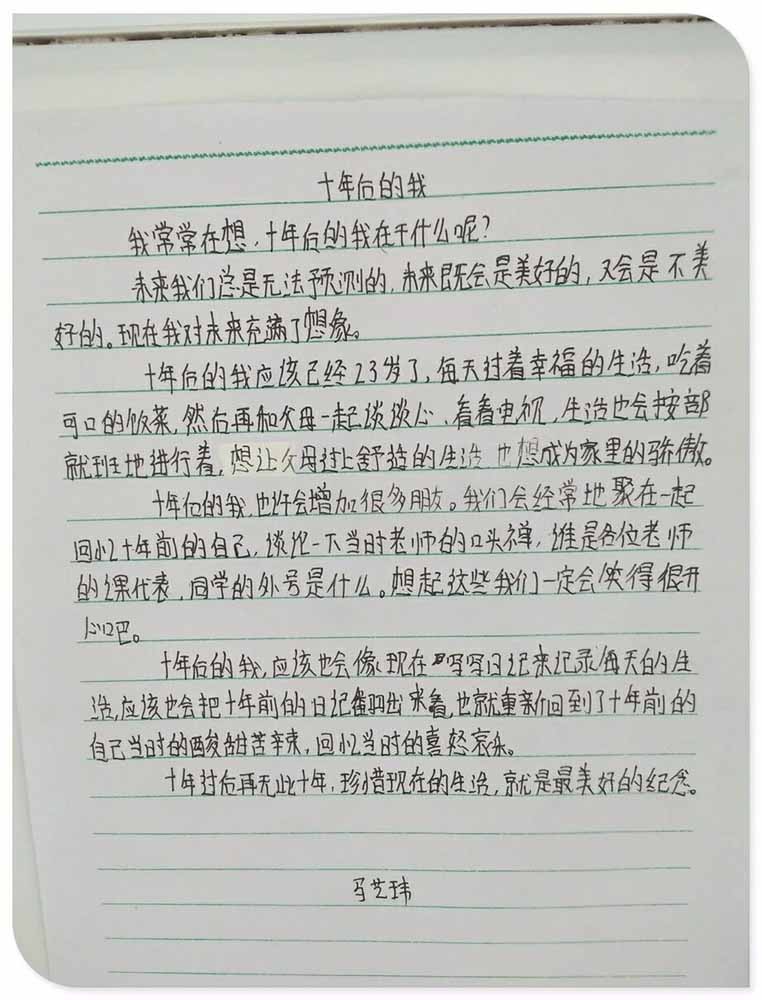 十年后的我
我常常在想，十年后的我在干什么呢？
未来我们总是无法预测的，未来既会是美好的，又会是不美
好的。现在我对未来充满了想像。
十年后的我应该已经23岁了，每天过着幸福的生活，吃着
可口的饭菜，然后再和父母一起谈谈心、看看电视，生活也会按部
就班地进行着，想让父母过上舒适的生活 也想成为家里的骄傲。
十年后的我，也许会增加很多朋友。我们会经常地聚在一起
回忆十年前的自己，谈论一下当时老师的口头禅，谁是各位老师
的课代表，同学的外号是什么。想起这些我们一定会笑得很开
心吧。
十年后的我，应该也会像现在写写日记来记录每天的生
活，应该也会把十年前的日记翻出来看，也就重新回到了十年前的
自己当时的酸甜苦辛辣，回忆当时的喜怒哀乐。
十年过后再无此十年，珍惜现在的生活，就是最美好的纪念。
马艺玮